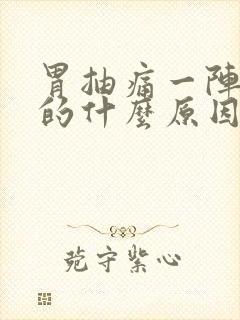 胃抽痛一陣
的什麼原因
苑守紫心